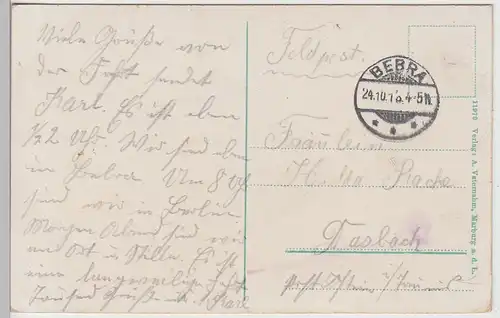 Viele Grüße von
der Fahrt sendet
Karl. Es ist eben
1/2 2 Uhr. Wir sind eben
in Bebra. Um 8 Uhr
sind wir in Berlin.
Morgen Abend sind wir
an Ort u. Stelle. Es ist
eine langweilige Fahrt.
Tausend Grüße Karl
Feldpost.
BEBRA
24.10.15. 4-5N.
Fräulein
Dasbach
Post Idstein i/Taunus
11970 Verlag: A. Vennemann, Marburg a. d. L.